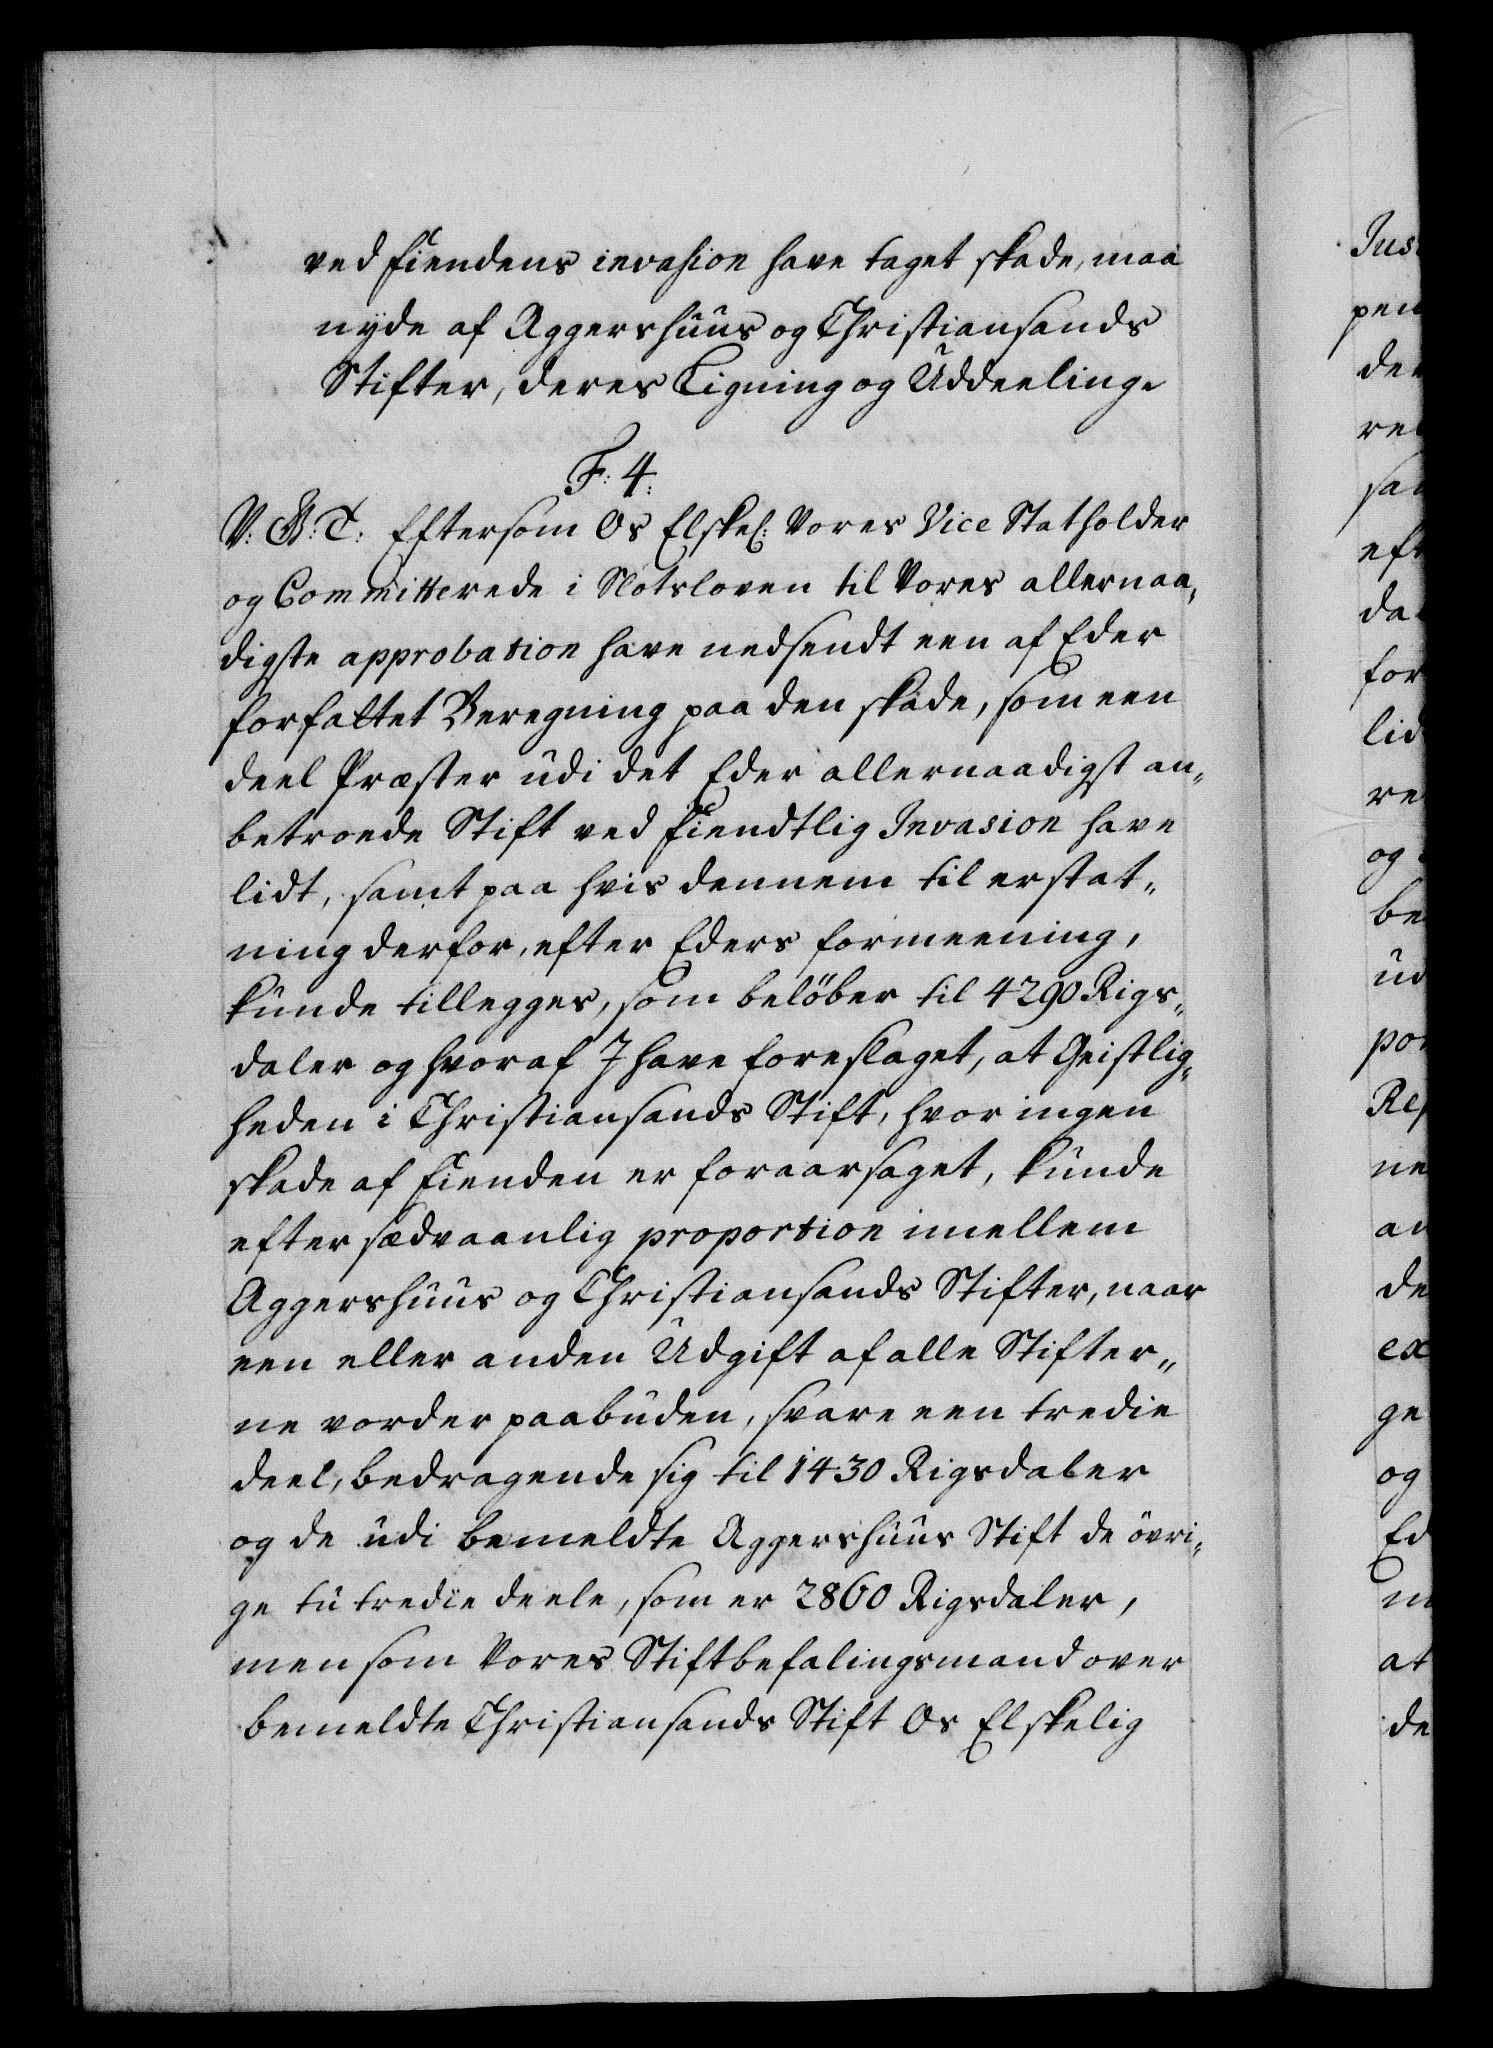 ved fiendens invasion have taget skade, maa
nyde af Aggershuus og Christiansands
Stifter, deres Ligning og Uddeeling.
F: 4:
V: G: T: Eftersom Os Elskel: Vores Vice Statholder
og Committerede i Slotsloven til Vores allernaa„
digste approbation have nedsendt een af Eder
forfattet Beregning paa den skade, som een
deel Præster udi det Eder allernaadigst an„
betroede Stift ved fiendtlig Invasion have
lidt, samt paa hvis dennem til erstat„
ning derfor, efter Eders formeening,
kunde tillegges, som beløber til 4290 Rigs„
daler og hvoraf I have foreslaget, at Geistlig„
heden i Christiansands Stift, hvor ingen
skade af fienden er foraarsaget, kunde
efter sædvaanlig proportion imellem
Aggershuus og Christiansands Stifter, naar
een eller anden Udgift af alle Stifter„
ne vorder paabuden, svare een tredie
deel, bedragende sig til 1430 Rigsdaler
og de udi bemeldte Aggershuus Stift de övri„
ge tu tredie deele, som er 2860 Rigsdaler,
men som Vores Stiftbefalingsmand over
bemeldte Christiansands Stift Os Elskelig